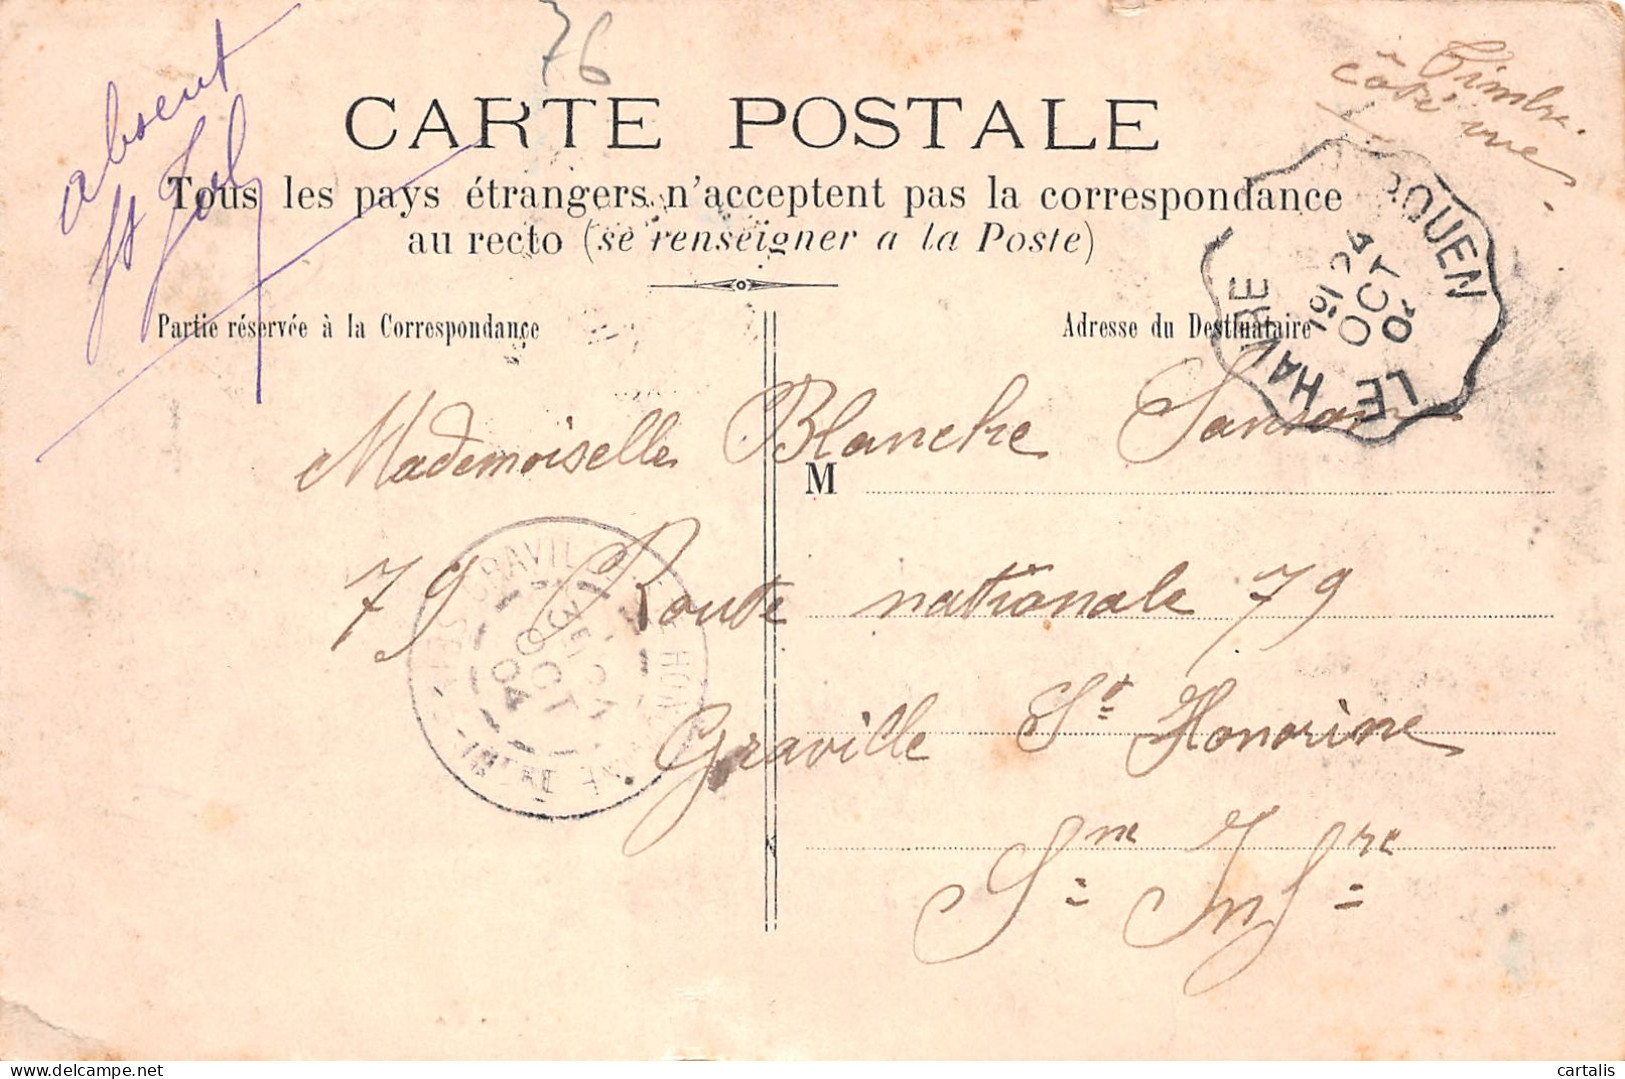 76
absent
Timbre
côté vue
CARTE POSTALE
Tous les pays étrangers n'acceptent pas la correspondance
au recto (se renseigner a la Poste)
ROUEN
LE HAVRE
24
OCT
04
Partie réservée à la Correspondance
Adresse du Destinataire
Mademoiselle Blanche Sanson
M
79 Route nationale 79
GRAVILLE
OCT
04
Graville Ste Honorine
Sne Infre
cartalis